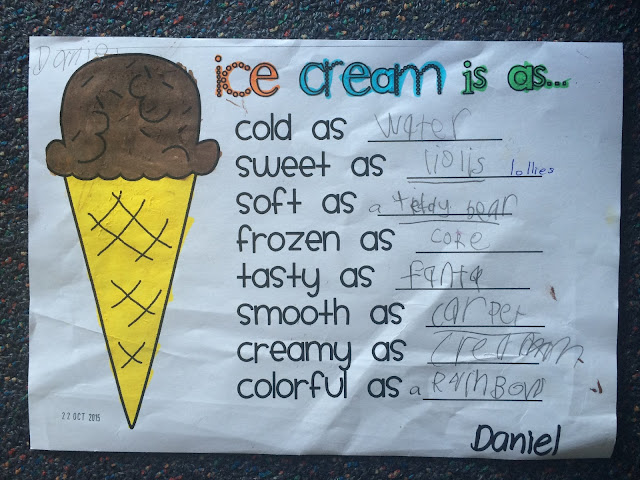 Daniel
ice cream is as...
cold as water
sweet as liolis lollies
soft as a teddy bear
frozen as coke
tasty as fanta
smooth as carpet
creamy as creamm
colorful as a RAINBOW
22 OCT 2015
Daniel